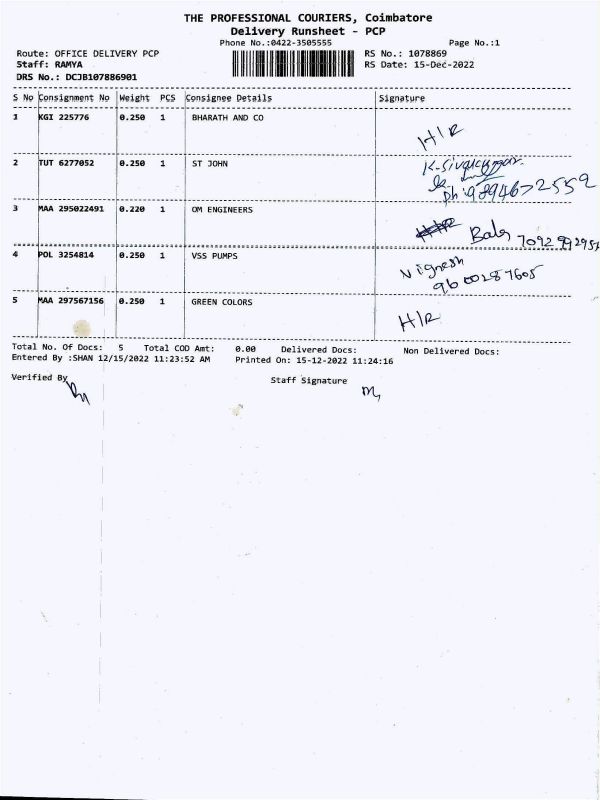 THE PROFESSIONAL COURIERS, Coimbatore
Delivery Runsheet - PCP
Phone No.:0422-3505555 Page No.:1
Route: OFFICE DELIVERY PCP RS No.: 1078869
Staff: RAMYA RS Date: 15-Dec-2022
DRS No.: DCJB107886901
S No Consignment No Weight PCS Consignee Details Signature
1 KGI 225776 0.250 1 BHARATH AND CO
H/R
2 TUT 6277052 0.250 1 ST JOHN
Ph: 9894672559
3 MAA 295022491 0.220 1 OM ENGINEERS
4 POL 3254814 0.250 1 VSS PUMPS
Vignesh
9600287605
5 MAA 297567156 0.250 1 GREEN COLORS
H/R
Total No. Of Docs: 5 Total COD Amt: 0.00 Delivered Docs: Non Delivered Docs:
Entered By :SHAN 12/15/2022 11:23:52 AM Printed On: 15-12-2022 11:24:16
Verified By Staff Signature